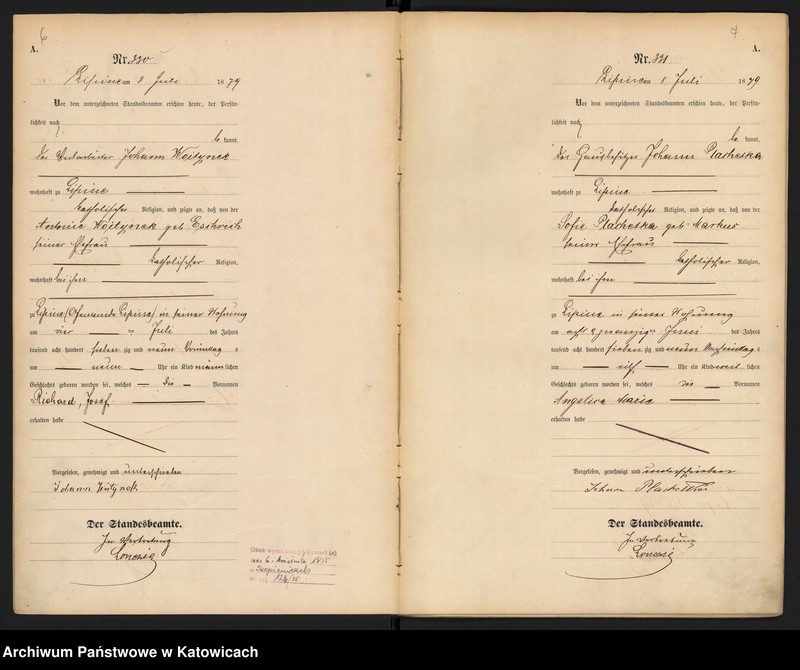 6
A.
Nr. 320
Lipine am 8 Juli 1879
Vor dem unterzeichneten Standesbeamten erschien heute, der Persön-
lichkeit nach
be kannt,
der Johann Wojtynek
wohnhaft zu Lipine
katholischer Religion, und zeigte an, daß von der
Antonie Wojtynek geb
seiner Ehefrau
katholischer Religion,
wohnhaft bei ihm
zu Lipine (Gemeinde Lipine) in seiner Wohnung
am vier ten Juli des Jahres
tausend acht hundert sieben zig und neun Vormittag s
um neun Uhr ein Kind männ lichen
Geschlechts geboren worden sei, welches die Vornamen
Richard, Josef
erhalten habe
Vorgelesen, genehmigt und unterschrieben
Johann
Der Standesbeamte.
In Vertretung
7
A.
Nr. 321
Lipine am 8 Juli 1879
Vor dem unterzeichneten Standesbeamten erschien heute, der Persön-
lichkeit nach
be kannt,
der Hausbesitzer Johann Placheska
wohnhaft zu Lipine
katholischer Religion, und zeigte an, daß von der
Sofie Placheska geb Markus
seiner Ehefrau
katholischer Religion,
wohnhaft bei ihm
zu Lipine in seiner Wohnung
am acht & zwanzig ten Juni des Jahres
tausend acht hundert sieben zig und neun Nachmittag s
um elf Uhr ein Kind weib lichen
Geschlechts geboren worden sei, welches die Vornamen
Angelica Maria
erhalten habe
Vorgelesen, genehmigt und unterschrieben
Johann
Der Standesbeamte.
In Vertretung
Archiwum Państwowe w Katowicach